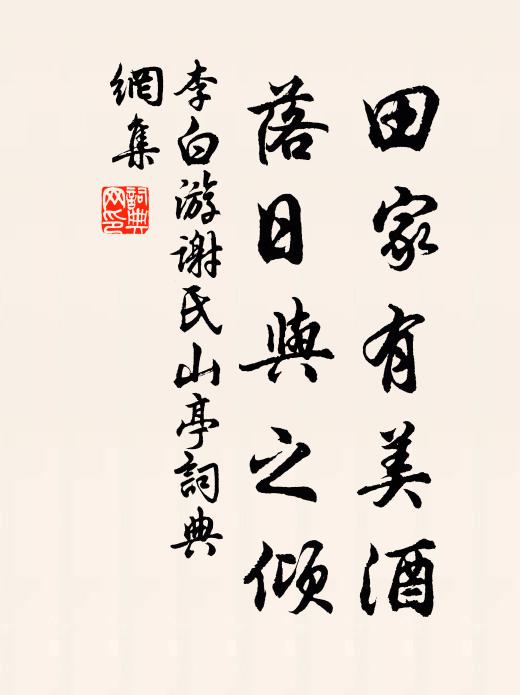 田家有美酒
落日與之傾
李白游謝氏山亭詞典
網集
詞典
网印